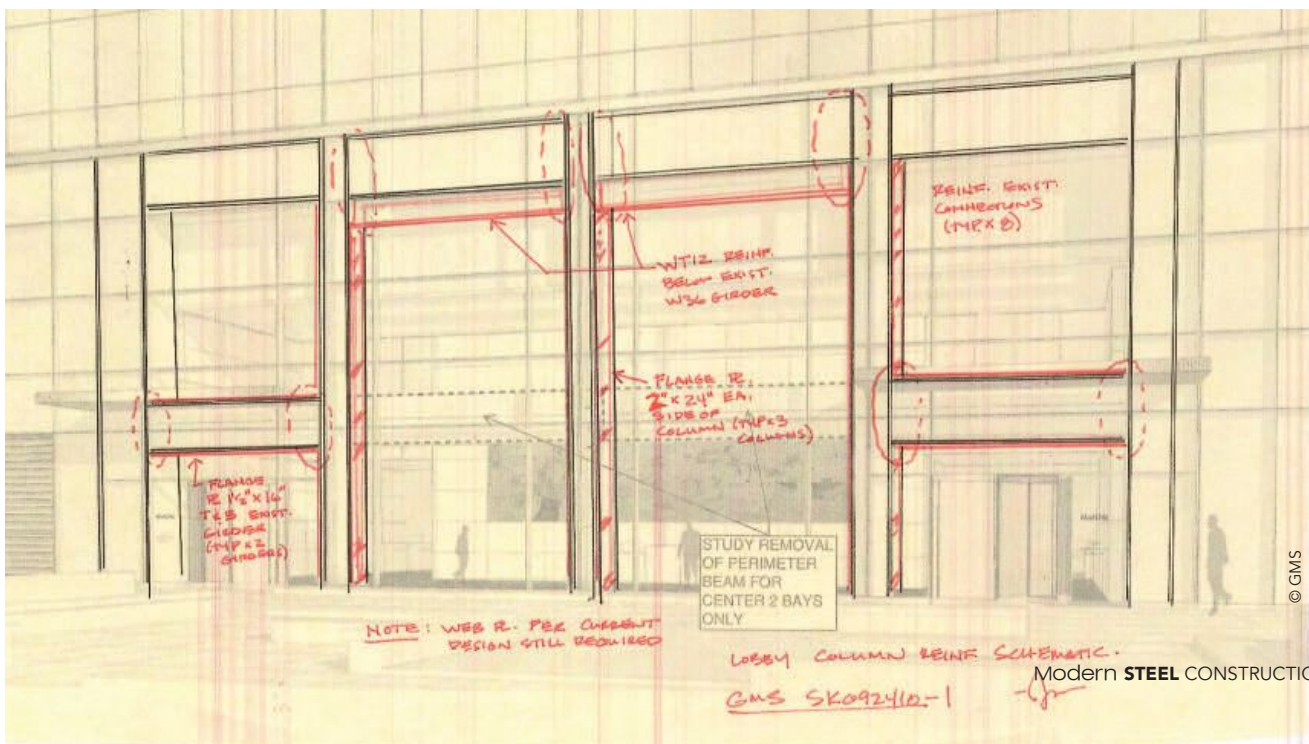 REINF. EXIST.
CONNECTIONS
(TYP. X 8)
WT12 REINF.
BELOW EXIST.
W36 GIRDER
FLANGE PL
2" x 24" EA.
SIDE OF
COLUMN (TYP x 3
COLUMNS)
FLANGE
PL 1½" x 16"
T&B EXIST.
GIRDER
(TYP x 2
GIRDERS)
STUDY REMOVAL
OF PERIMETER
BEAM FOR
CENTER 2 BAYS
ONLY
NOTE: WEB PL. PER CURRENT
DESIGN STILL REQUIRED
LOBBY COLUMN REINF SCHEMATIC.
GMS SK092410-1
Modern STEEL CONSTRUCTIO
© GMS